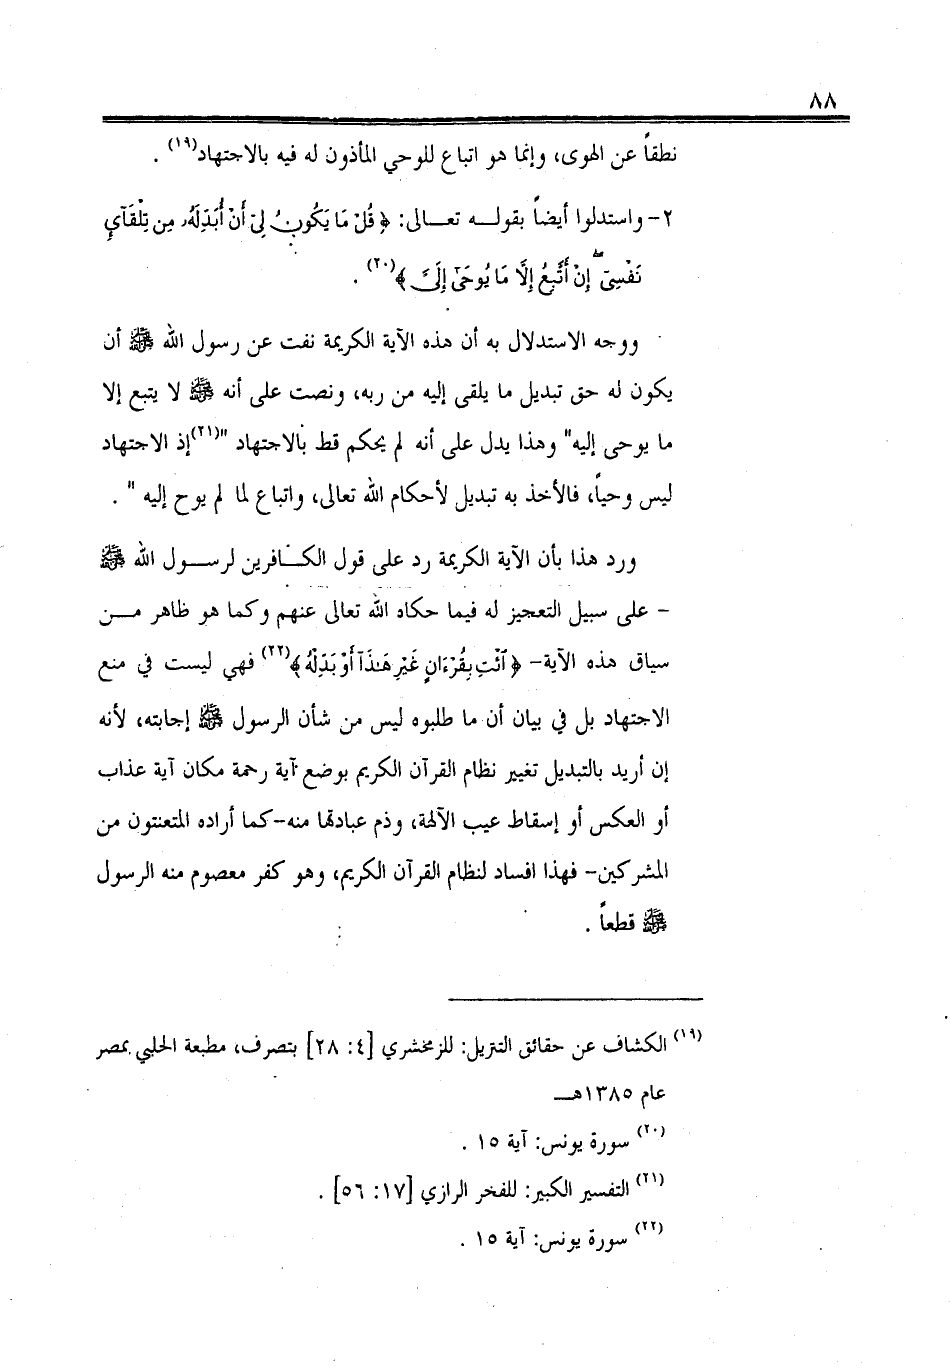 ٨٨
نطقاً عن الهوى، وإنما هو اتباع للوحي المأذون له فيه بالاجتهاد(١٩) .
٢- واستدلوا أيضاً بقولـــه تعـالى: ﴿ قُلْ مَا يَكُونُ لِىٓ أَنْ أُبَدِّلَهُۥ مِن تِلْقَآئِ
نَفْسِىٓ ۖ إِنْ أَتَّبِعُ إِلَّا مَا يُوحَىٰٓ إِلَىَّ ﴾(٢٠) .
ووجه الاستدلال به أن هذه الآية الكريمة نفت عن رسول الله ﷺ أن
يكون له حق تبديل ما يلقى إليه من ربه، ونصت على أنه ﷺ لا يتبع إلا
ما يوحى إليه" وهذا يدل على أنه لم يحكم قط بالاجتهاد "(٢١)إذ الاجتهاد
ليس وحياً، فالأخذ به تبديل لأحكام الله تعالى، واتباع لما لم يوح إليه " .
ورد هذا بأن الآية الكريمة رد على قول الكــافرين لرســول الله ﷺ
- على سبيل التعجيز له فيما حكاه الله تعالى عنهم وكما هو ظاهر مــن
سياق هذه الآية- ﴿ ٱئْتِ بِقُرْءَانٍ غَيْرِ هَٰذَآ أَوْ بَدِّلْهُ ﴾(٢٢) فهي ليست في منع
الاجتهاد بل في بيان أن ما طلبوه ليس من شأن الرسول ﷺ إجابته، لأنه
إن أريد بالتبديل تغيير نظام القرآن الكريم بوضع آية رحمة مكان آية عذاب
أو العكس أو إسقاط عيب الآلهة، وذم عبادتها منه-كما أراده المتعنتون من
المشركين- فهذا افساد لنظام القرآن الكريم، وهو كفر معصوم منه الرسول
ﷺ قطعاً .
(١٩) الكشاف عن حقائق التنزيل: للزمخشري [٤: ٢٨] بتصرف، مطبعة الحلبي بمصر
عام ١٣٨٥هــ
(٢٠) سورة يونس: آية ١٥ .
(٢١) التفسير الكبير: للفخر الرازي [١٧: ٥٦] .
(٢٢) سورة يونس: آية ١٥ .